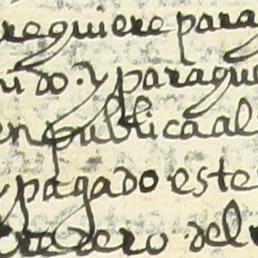 requiere para
ido. y para que
en publica al
y pagado este
dero del